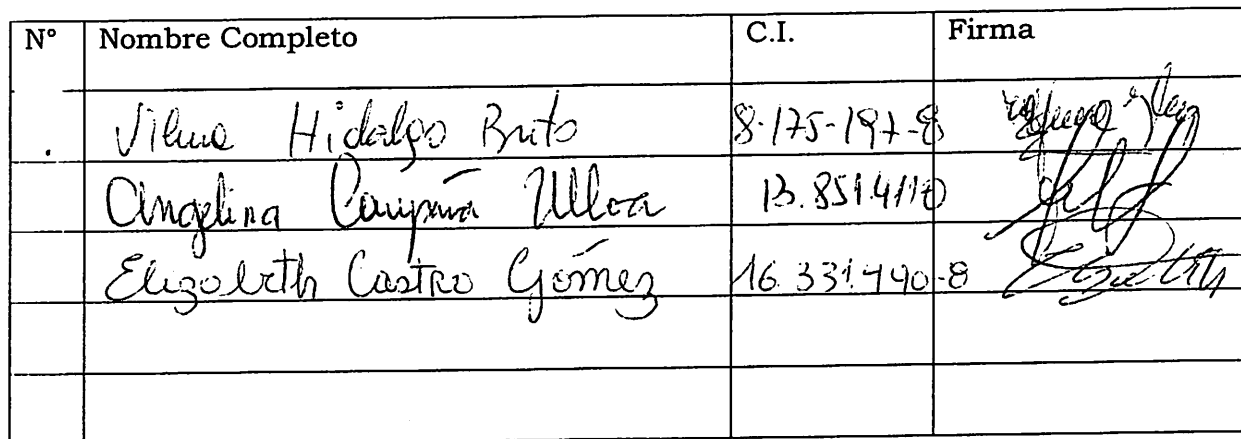 N° Nombre Completo C.I. Firma
Vilma Hidalgo Brito 8-175-197-8
Angelina Campaña Ulloa 13.851.411-0
Elizabeth Castro Gómez 16.331.440-8